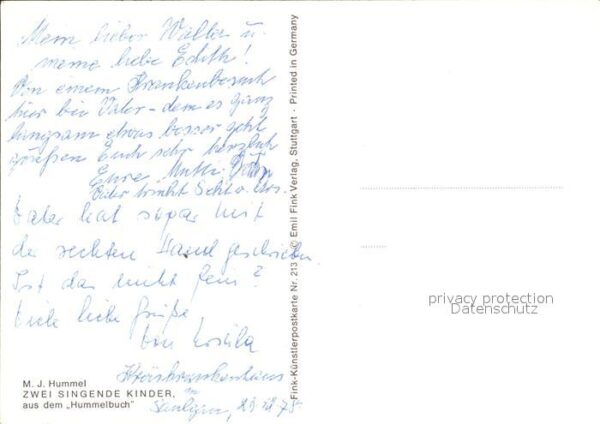 Mein lieber Walter u.
meine liebe Edith!
Von einem Krankenbesuch
hier bei Vater - dem es ganz
langsam etwas besser geht
grüßen Euch sehr herzlich
Eure Mutti
Vater trinkt Sekt u.
Vater hat sogar mit
der rechten Hand geschrieben
Ist das nicht fein?
Viele liebe Grüße
von
Kreiskrankenhaus
M. J. Hummel
ZWEI SINGENDE KINDER,
aus dem „Hummelbuch"
Fink-Künstlerpostkarte Nr. 213 © Emil Fink Verlag, Stuttgart · Printed in Germany
privacy protection
Datenschutz